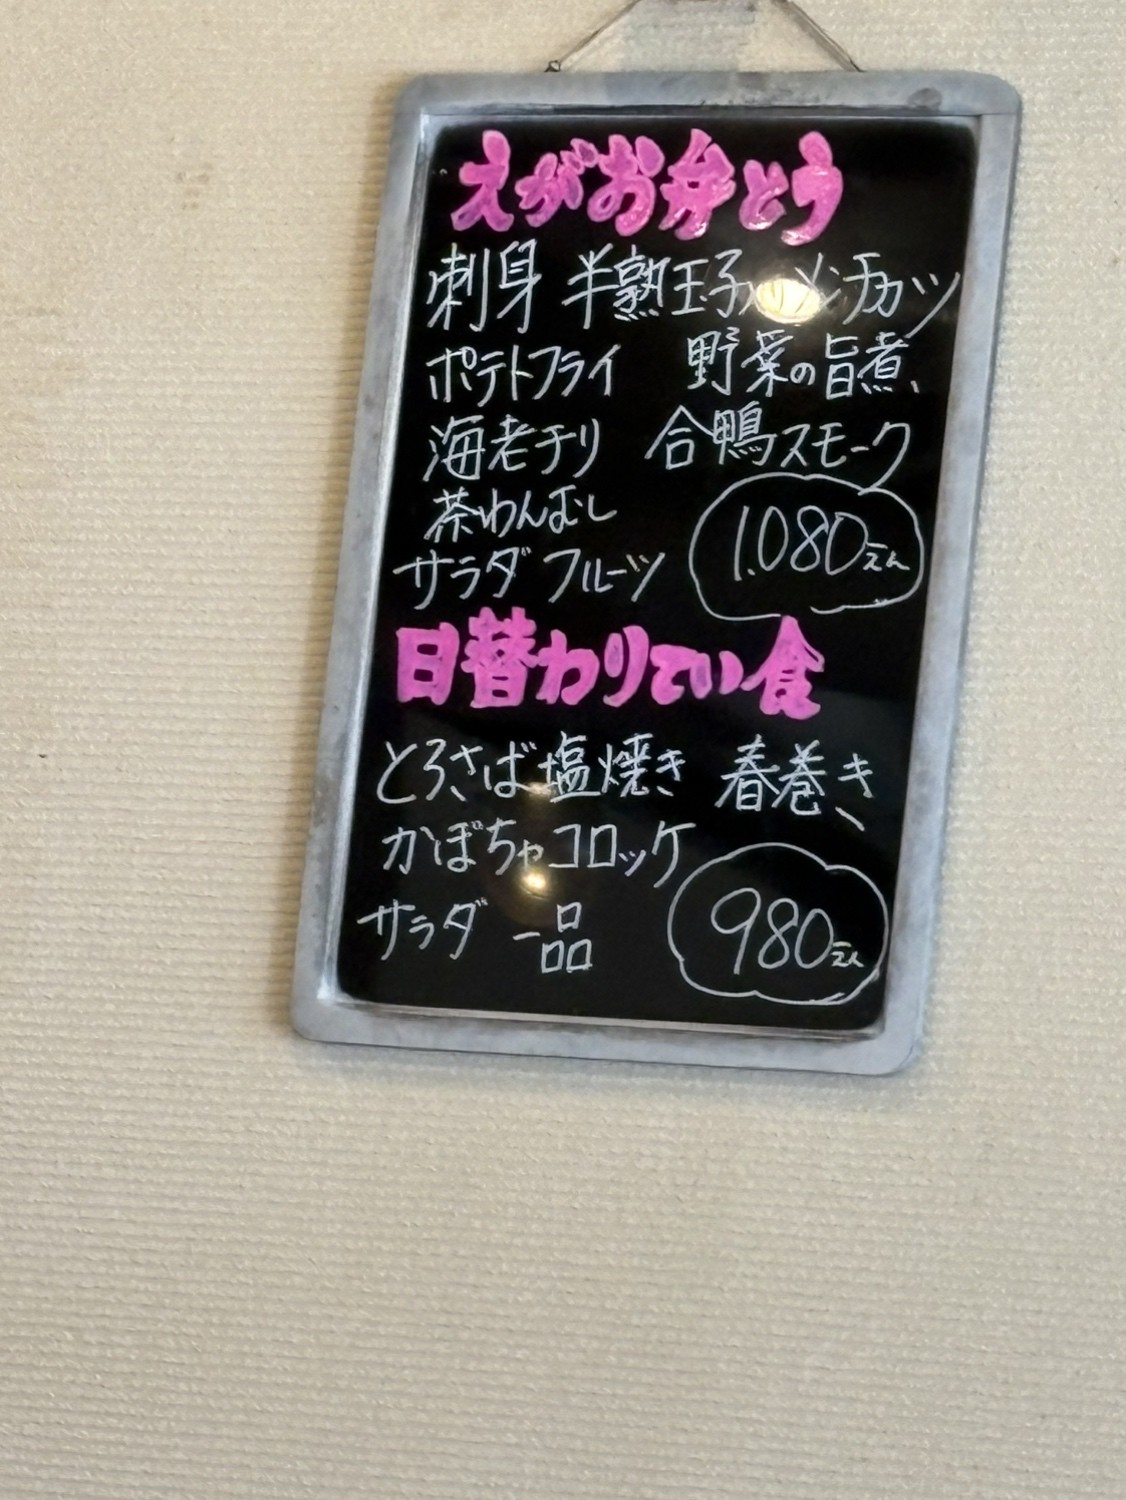 えがお弁とう
刺身 半熟玉子入りメンチカツ
ポテトフライ 野菜の旨煮
海老チリ 合鴨スモーク
茶わんむし
サラダ フルーツ 1.080えん
日替わりてい食
とろさば塩焼き 春巻き
かぼちゃコロッケ
サラダ 一品 980えん